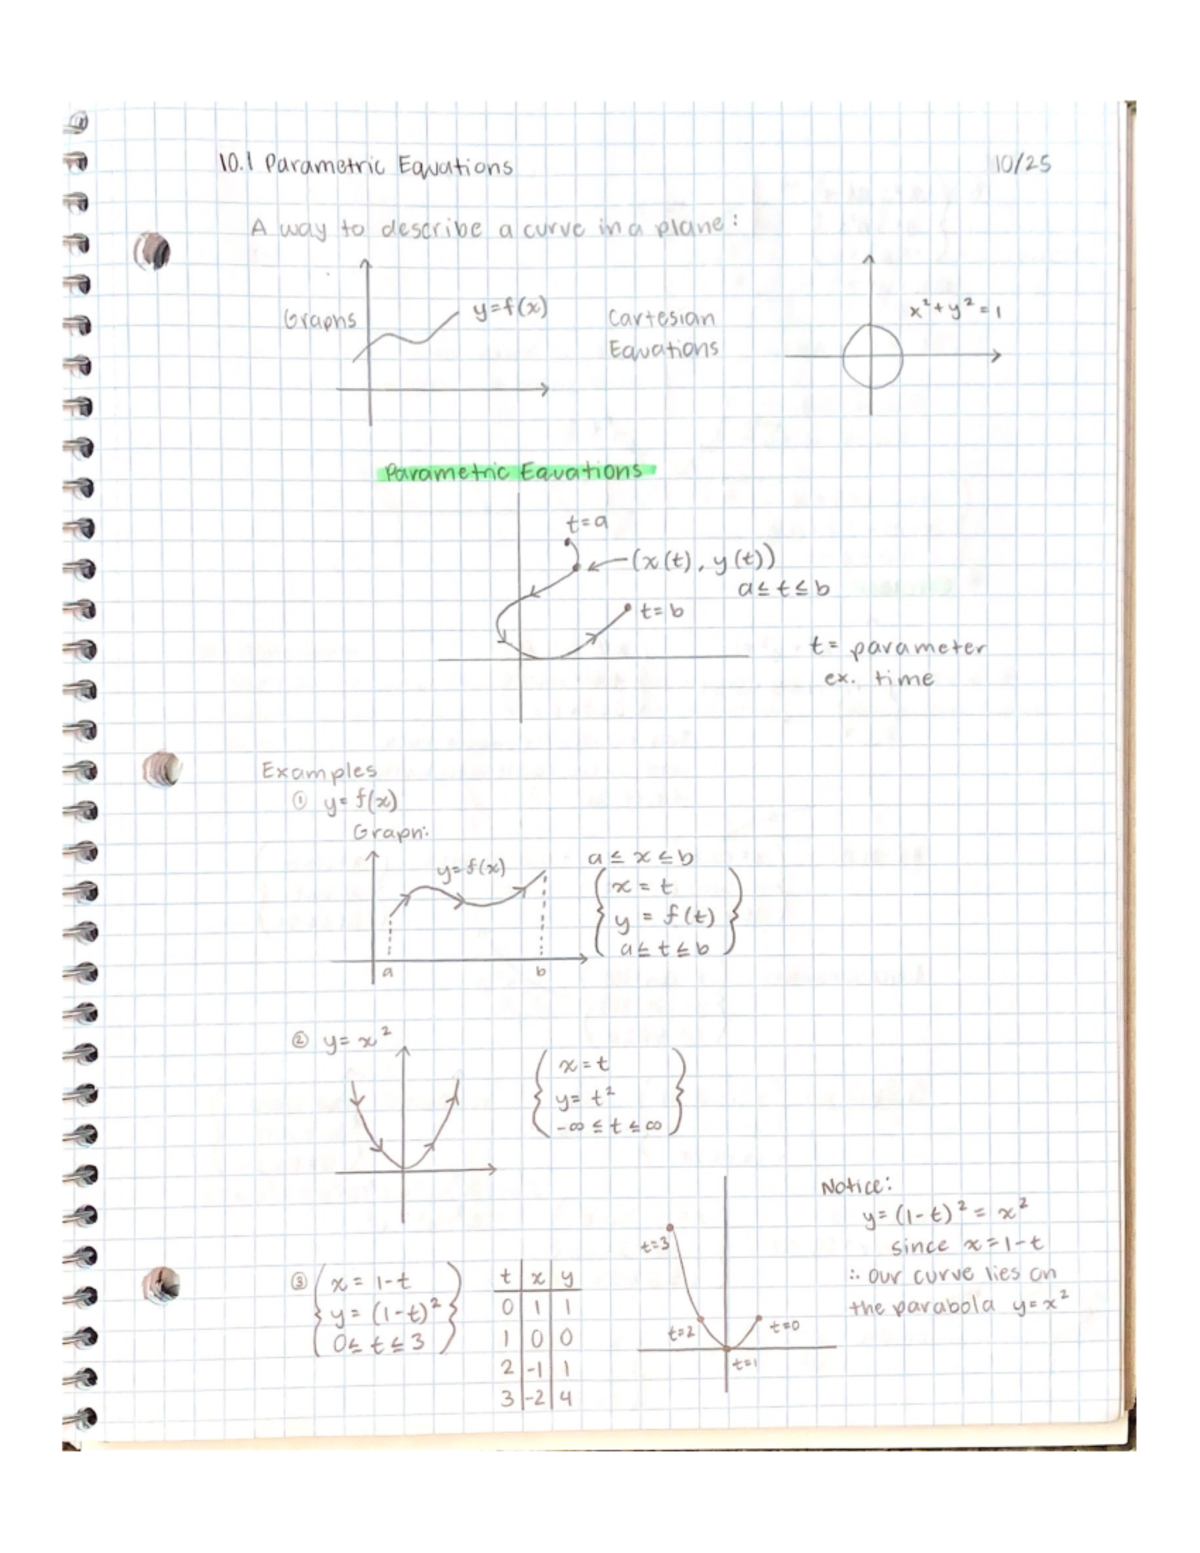 10.1 Parametric Equations 10/25
A way to describe a curve in a plane:
Graphs
y=f(x)
Cartesian
Equations
x²+y²=1
Parametric Equations
t=a
(x(t), y(t))
a≤t≤b
t=b
t= parameter
ex. time
Examples
① y=f(x)
Graph:
y=f(x)
a b
a≤x≤b
x=t
y=f(t)
a≤t≤b
② y=x²
x=t
y=t²
-∞≤t≤∞
③ x=1-t
y=(1-t)²
0≤t≤3
t x y
0 1 1
1 0 0
2 -1 1
3 -2 4
t=3
t=2
t=0
t=1
Notice:
y=(1-t)²=x²
since x=1-t
∴ our curve lies on
the parabola y=x²